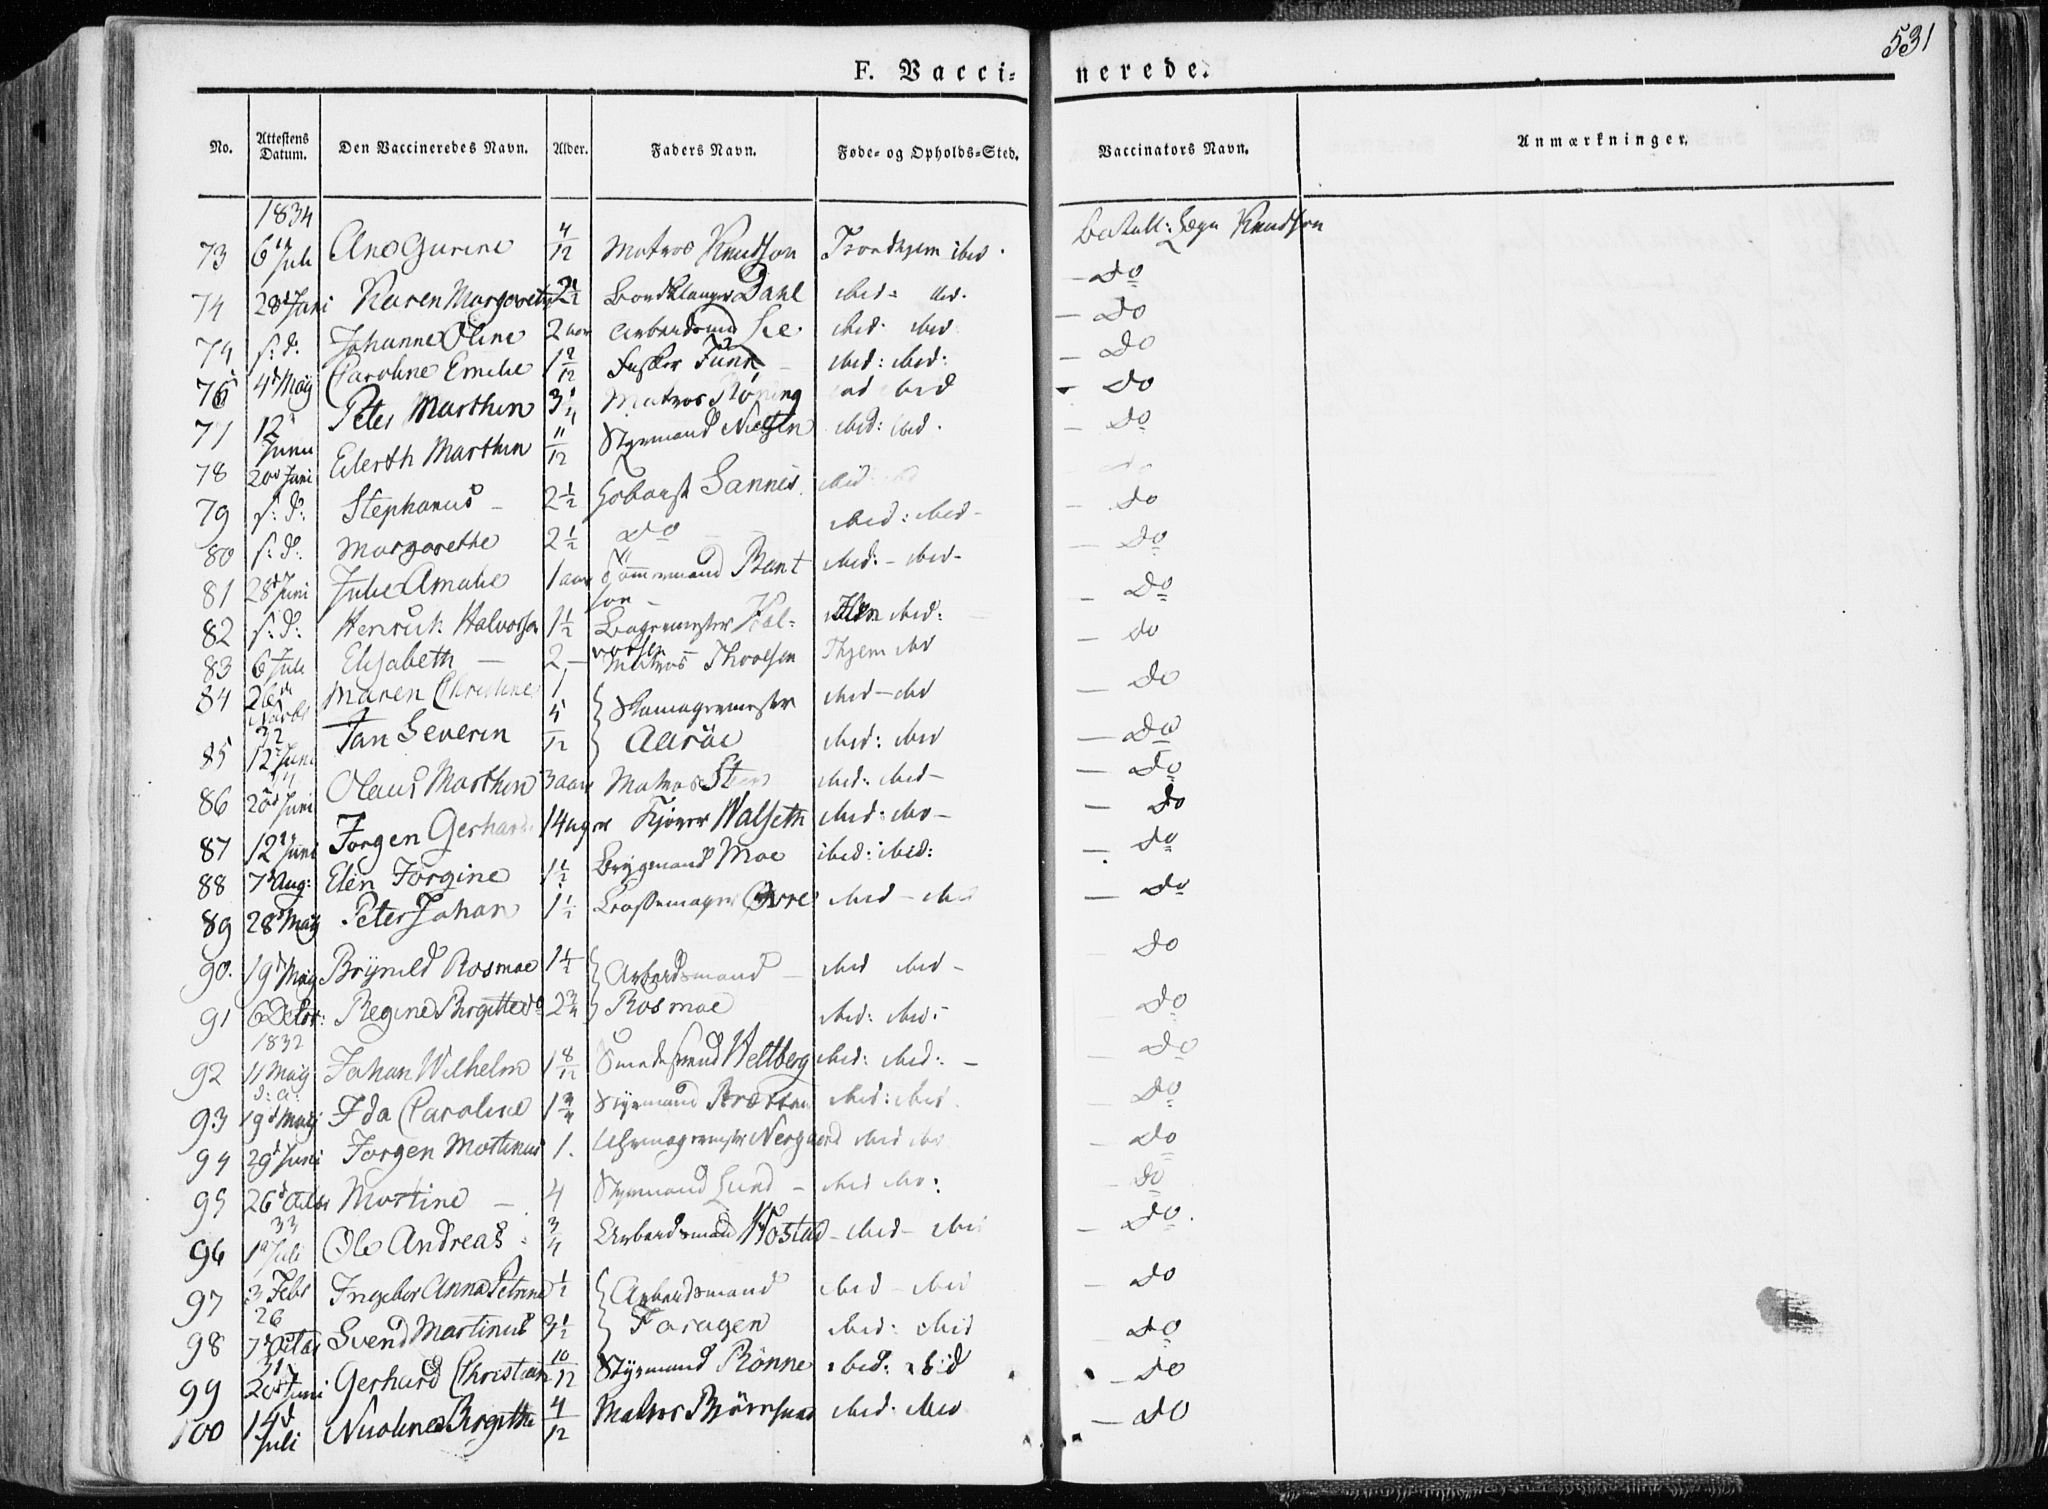 531
F. Vacci= nerede.
No. Attestens Datum. Den Vaccineredes Navn. Alder. Faders Navn. Føde- og Opholds-Sted. Vaccinators Navn. Anmærkninger.
1834
73 6 Juli Ane Gurine 4/12 Matros Knudson Trondhjem ibid. Knudson
74 28d Juni Karen Margarethe 2 1/2 Dahl ibid: ibid. – Do
74 s: d: Johanne Oline 2 aar Lie ibid: ibid – Do
76 4d Maij Caroline Emelie Fisker Funk – ibid: ibid: – Do
77 12 Junii Peter Marthin 3 1/4 Matros Röning ibid – Do
78 20d Juni Eilerth Marthin 11/12 Styrmand Nielsen ibid: ibid. – Do
79 s: d: Stephanus – 2 1/2 Sannes ibid
80 s: d: Margarethe 2 1/2 Do – ibid: ibid – – Do
81 28d Juni Julie Amalie 1 aar Tömmermand Bentson – ibid: – ibid – – Do
82 s: d: Henrich Halvorsen 1 1/2 Bagermester Halvorsen Ihlen ibid: – Do
83 6 Juli Elisabeth – 2 – Matros Thhjem ibid – do
84 26d 32 Maren Christine 1 } Skomagermester ibid – ibid – Do
85 12 Juni Jan Severin 5/12 } Aaröe ibid: ibid – Do
86 20d Juni Olaus Marthin 3 aar Matros ibid: ibid – – Do
87 12 Juni Jörgen Gerhard 14 uger Walseth ibid: ibid – – Do
88 7d Aug: Elen Jörgine 1 1/2 Brygmand Moe ibid: ibid: – Do
89 28d Maij Peter Johan 1 1/2 ibid – ibid – Do
90. 19d Maij Brynild Rosmoe 1 1/2 } Arbeidsmand – ibid ibid – Do
91 6 Decbr: 1832 Regine Birgitte do 2 3/4 } Rosmoe ibid: ibid: – Do
92 11 Maij d: a: Johan Wilhelm 1 8/12 Smedesvend Veltberg ibid: ibid: – – Do
93 19d Maij Ida Caroline 1 3/4 Styrmand ibid: ibid. – Do
94 29d Juni Jörgen Mathinus 1. Uhrmagermester Nergaard ibid ibid – Do
95 26d 33 Martine – 4 Styrmand Lund – ibid ibid: – Do
96 1d Juli Ole Andreas 3/4 Arbeidsmand – ibid – ibid – Do.
97 3 Febr 26 Ingebor Anna Petrine 1/2 } Arbeidsmand ibid – ibid – Do
98 7d Octbr 31 Svend Martinus 3 1/2 } Faragen ibid: ibid – Do
99 20d Juni Gerhard Christian 10/12 Styrmand Rönne ibid: ibid – Do
100 14d Juli Nicoline Birgitha 4/12 Matros ibid: ibid – Do